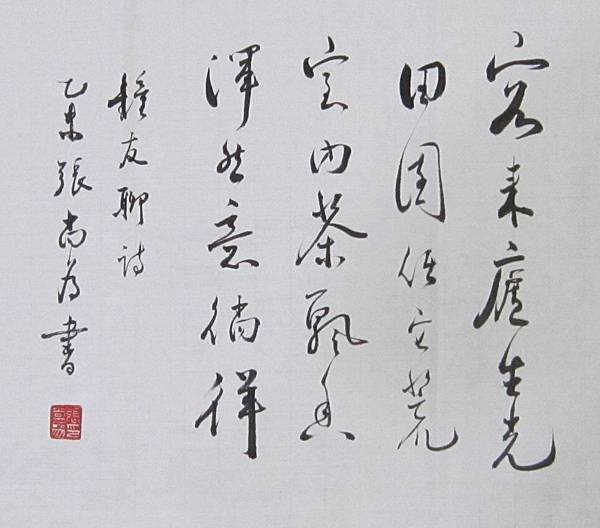 客来廬生光
田園任它荒
室内茶飄香
渾然意徜徉
鍾友聊詩
乙未張尚為書